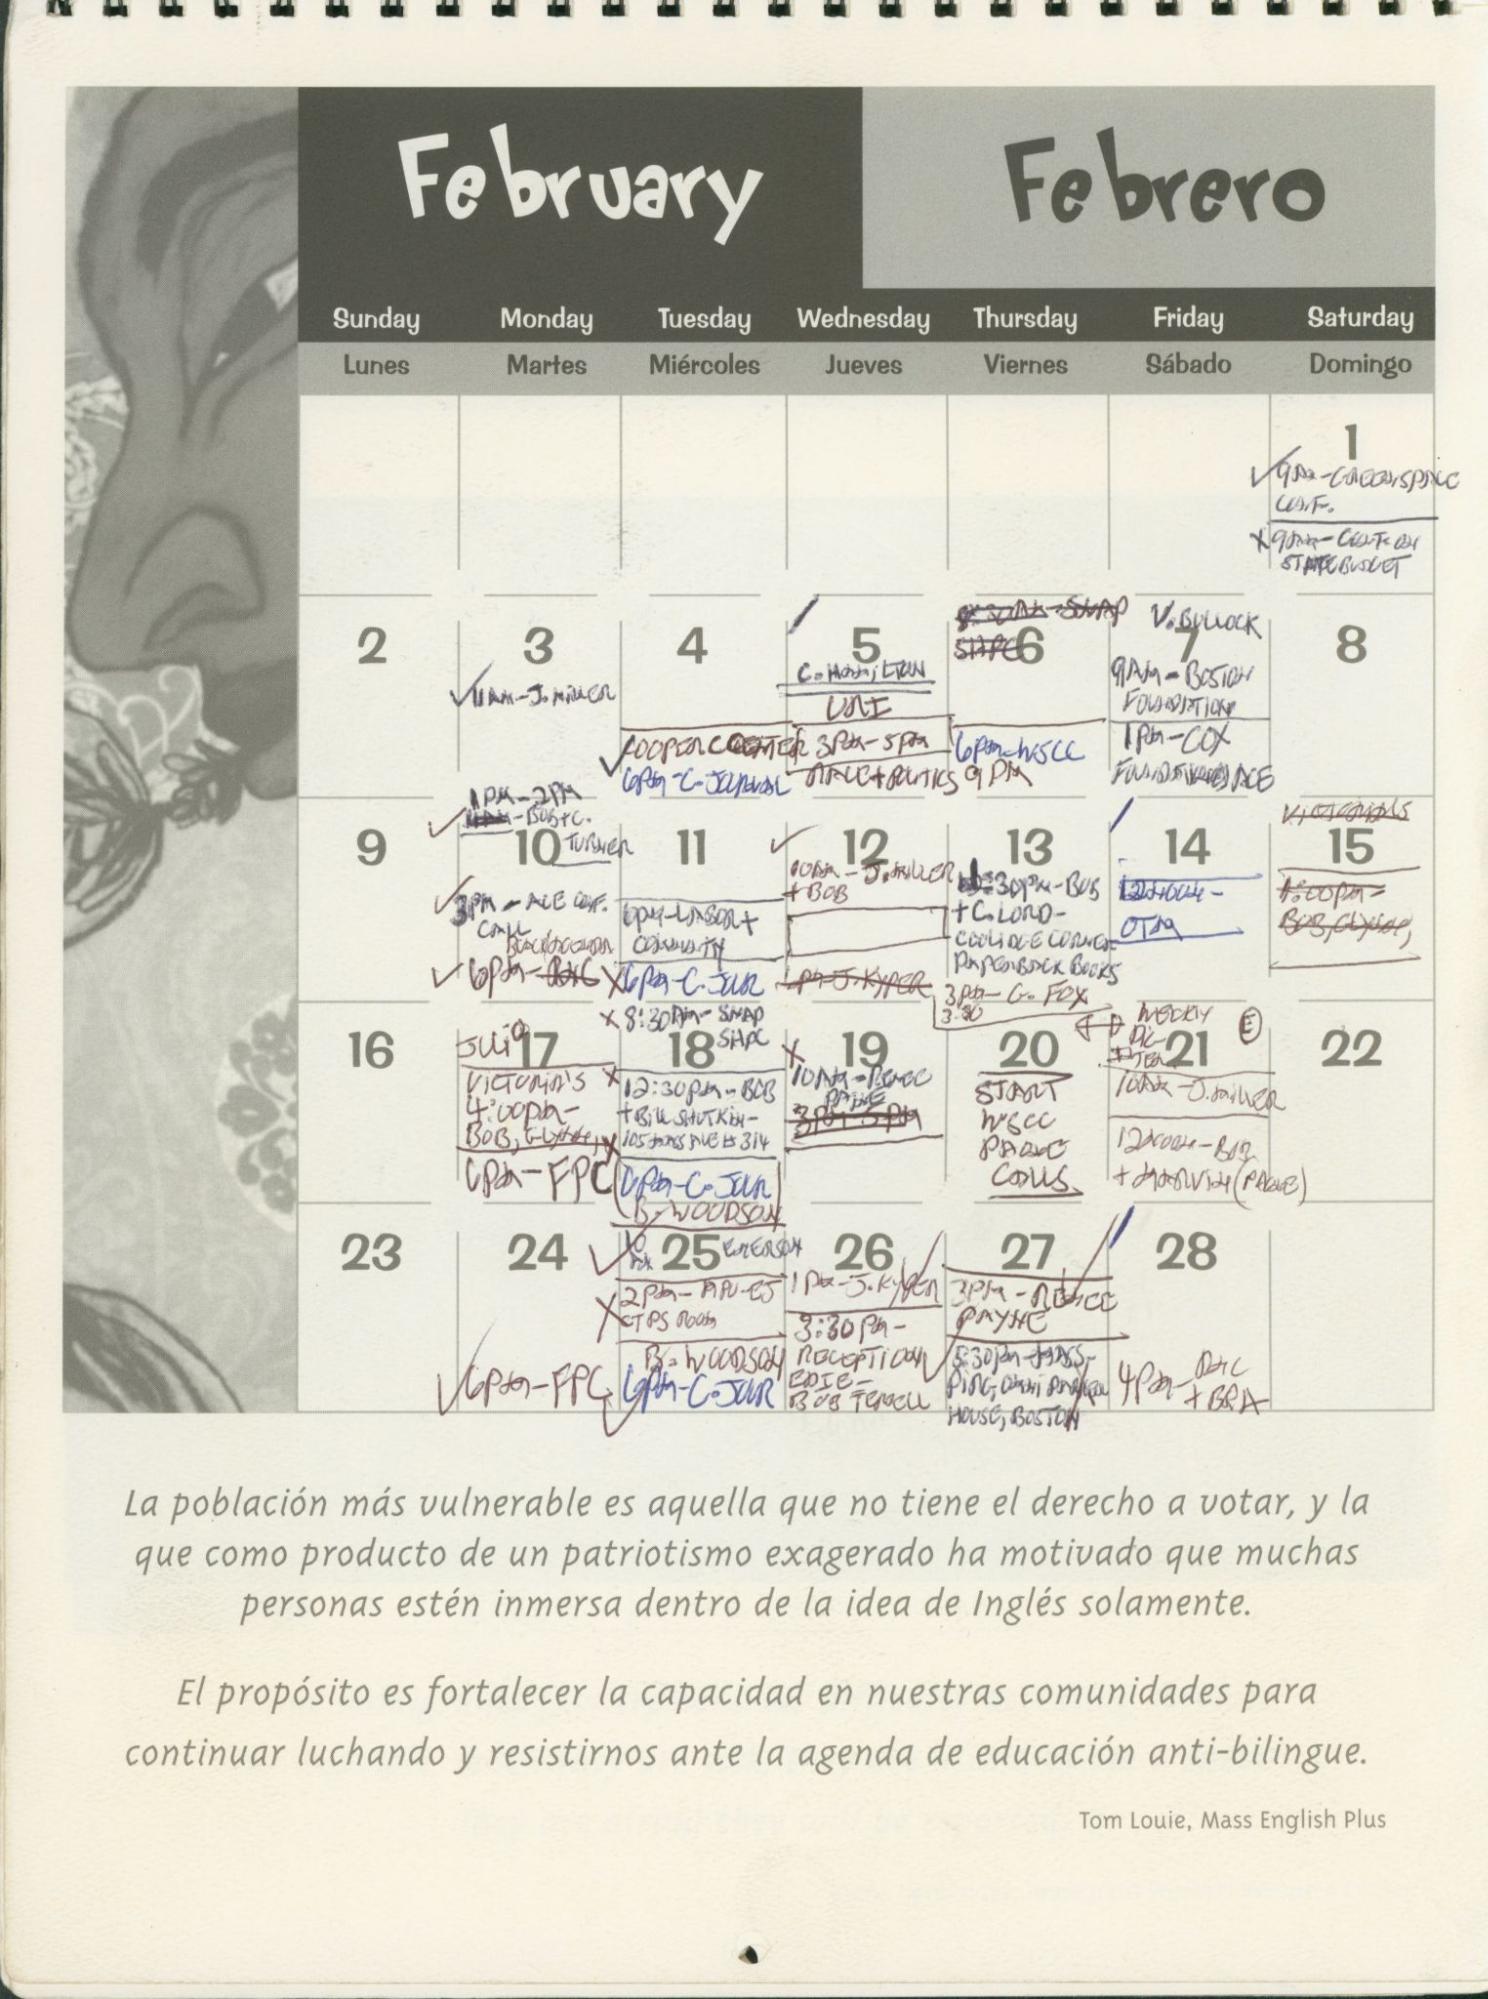 February Febrero
Sunday Monday Tuesday Wednesday Thursday Friday Saturday
Lunes Martes Miércoles Jueves Viernes Sábado Domingo
1
✓9AM-GREENSPACE
CONF.
X 9AM-CONF ON
STATE BUDGET
2
3
✓11AM-J. MILLER
4
✓COOPER CENTER
6PM-C. JOURNAL
5
C. HAMILTON
URI
3PM-5PM
RACE + POLITICS
6
8:30AM-SNAP
SHPC
6PM-WSCC
9PM
7
V. BULLOCK
9AM-BOSTON
FOUNDATION
1PM-COX
8
9
10
1PM-2PM
11AM-BOB+C.
TURNER
3PM-ACE CONF.
CALL
✓ 6PM-
11
6PM-LABOR+
COMMUNITY
X 6PM-C. JOUR
12
10AM-J. MILLER
+BOB
PM-J. KYPER
13
:30PM-BOB
+C. LORD-
COOLIDGE CORNER
PAPERBACK BOOKS
3PM-G. FOX
3:30
14
12NOON-
OTM
15
VICTORIA'S
4:00PM-
BOB, GLYNN,
16
17
JULIO
VICTORIA'S
4:00PM-
BOB, GLYNN,
6PM-FPC
18
X 8:30AM-SNAP
SHPC
X 12:30PM-BOB
+BILL SHUTKIN-
105 MASS AVE # 314
6PM-C. JOUR
B. WOODSON
19
X
10AM-RENEE
PAYNE
3PM-5PM
20
START
WSCC
PHONE
CALLS
21
WEEKLY
10AM-J. MILLER
12NOON-BOB
+MARVIN (PHONE)
22
23
24
✓6PM-FPC
25
10
AM EMERSON
X 2PM-
CTPS ROOM
B. WOODSON
6PM-C. JOUR
26
1PM-J. KYPER
3:30PM-
RECEPTION
EDIE-
BOB TERRELL
27
3PM-RENEE
PAYNE
5:30PM-MASS-
PIRG, OMNI PARKER
HOUSE, BOSTON
28
4PM-
+BRA
La población más vulnerable es aquella que no tiene el derecho a votar, y la
que como producto de un patriotismo exagerado ha motivado que muchas
personas estén inmersa dentro de la idea de Inglés solamente.
El propósito es fortalecer la capacidad en nuestras comunidades para
continuar luchando y resistirnos ante la agenda de educación anti-bilingue.
Tom Louie, Mass English Plus